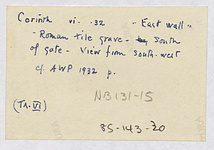 Corinth vi. 32 "East wall"
- Roman tile grave - South
of gate - View from south-west
cf. AWP 1932 p.
NB131-15
(TA.VI)
85-143-20